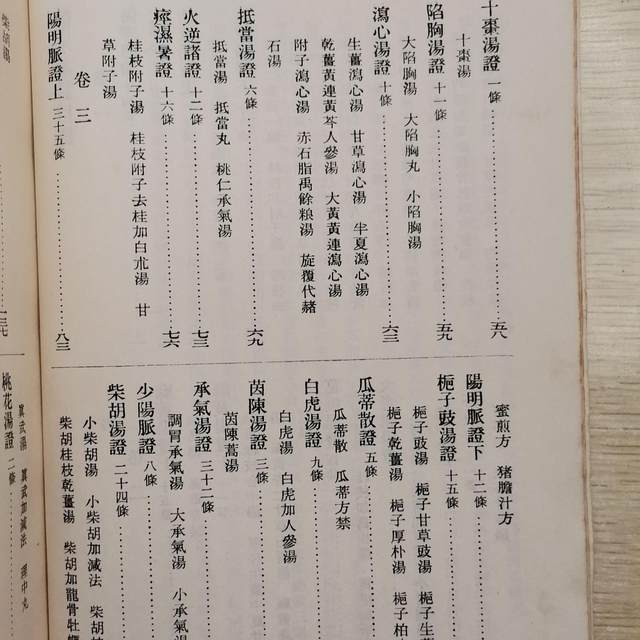 十棗湯證 一條 五八
十棗湯
陷胸湯證 十一條 五九
大陷胸湯 大陷胸丸 小陷胸湯
瀉心湯證 十條 六三
生薑瀉心湯 甘草瀉心湯 半夏瀉心湯
乾薑黃連黃芩人參湯 大黃黃連瀉心湯
附子瀉心湯 赤石脂禹餘粮湯 旋覆代赭
石湯
抵當湯證 六條 六九
抵當湯 抵當丸 桃仁承氣湯
火逆諸證 十二條 七三
痙濕暑證 十六條 七六
桂枝附子湯 桂枝附子去桂加白朮湯 甘
草附子湯
卷三
陽明脈證上 三十五條 八三
蜜煎方 猪膽汁方
陽明脈證下 十二條
梔子豉湯證 十五條
梔子豉湯 梔子甘草豉湯 梔子生薑
梔子乾薑湯 梔子厚朴湯 梔子柏
瓜蒂散證 五條
瓜蒂散 瓜蒂方禁
白虎湯證 九條
白虎湯 白虎加人參湯
茵陳湯證 三條
茵陳蒿湯
承氣湯證 三十二條
調胃承氣湯 大承氣湯 小承氣湯
少陽脈證 八條
柴胡湯證 二十四條
小柴胡湯 小柴胡加減法 柴胡
柴胡桂枝乾薑湯 柴胡加龍骨牡蠣
柴胡湯
真武湯 真武加減法 理中丸
桃花湯證 二條